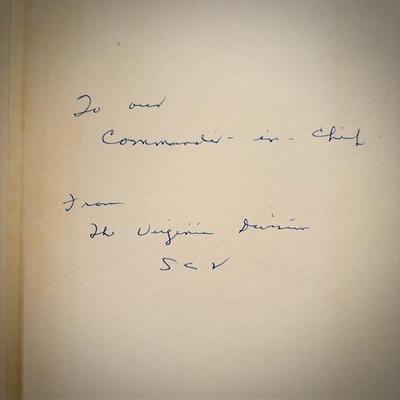 To our
Commander-in-Chief
From
The Virginia Division
SCV